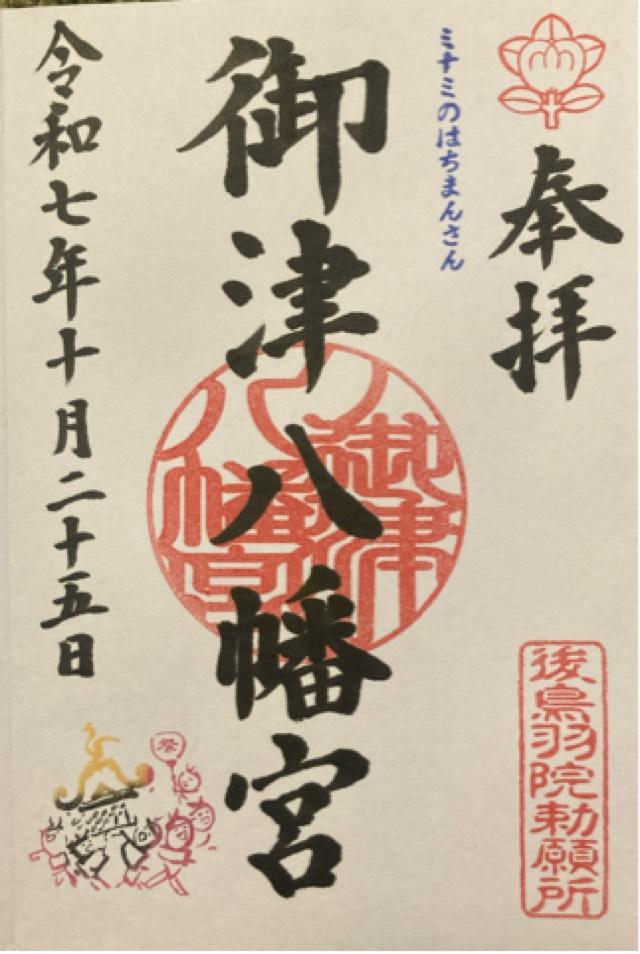 奉拝
ミナミのはちまんさん
御津八幡宮
御津八幡宮
令和七年十月二十五日
後鳥羽院勅願所
祭